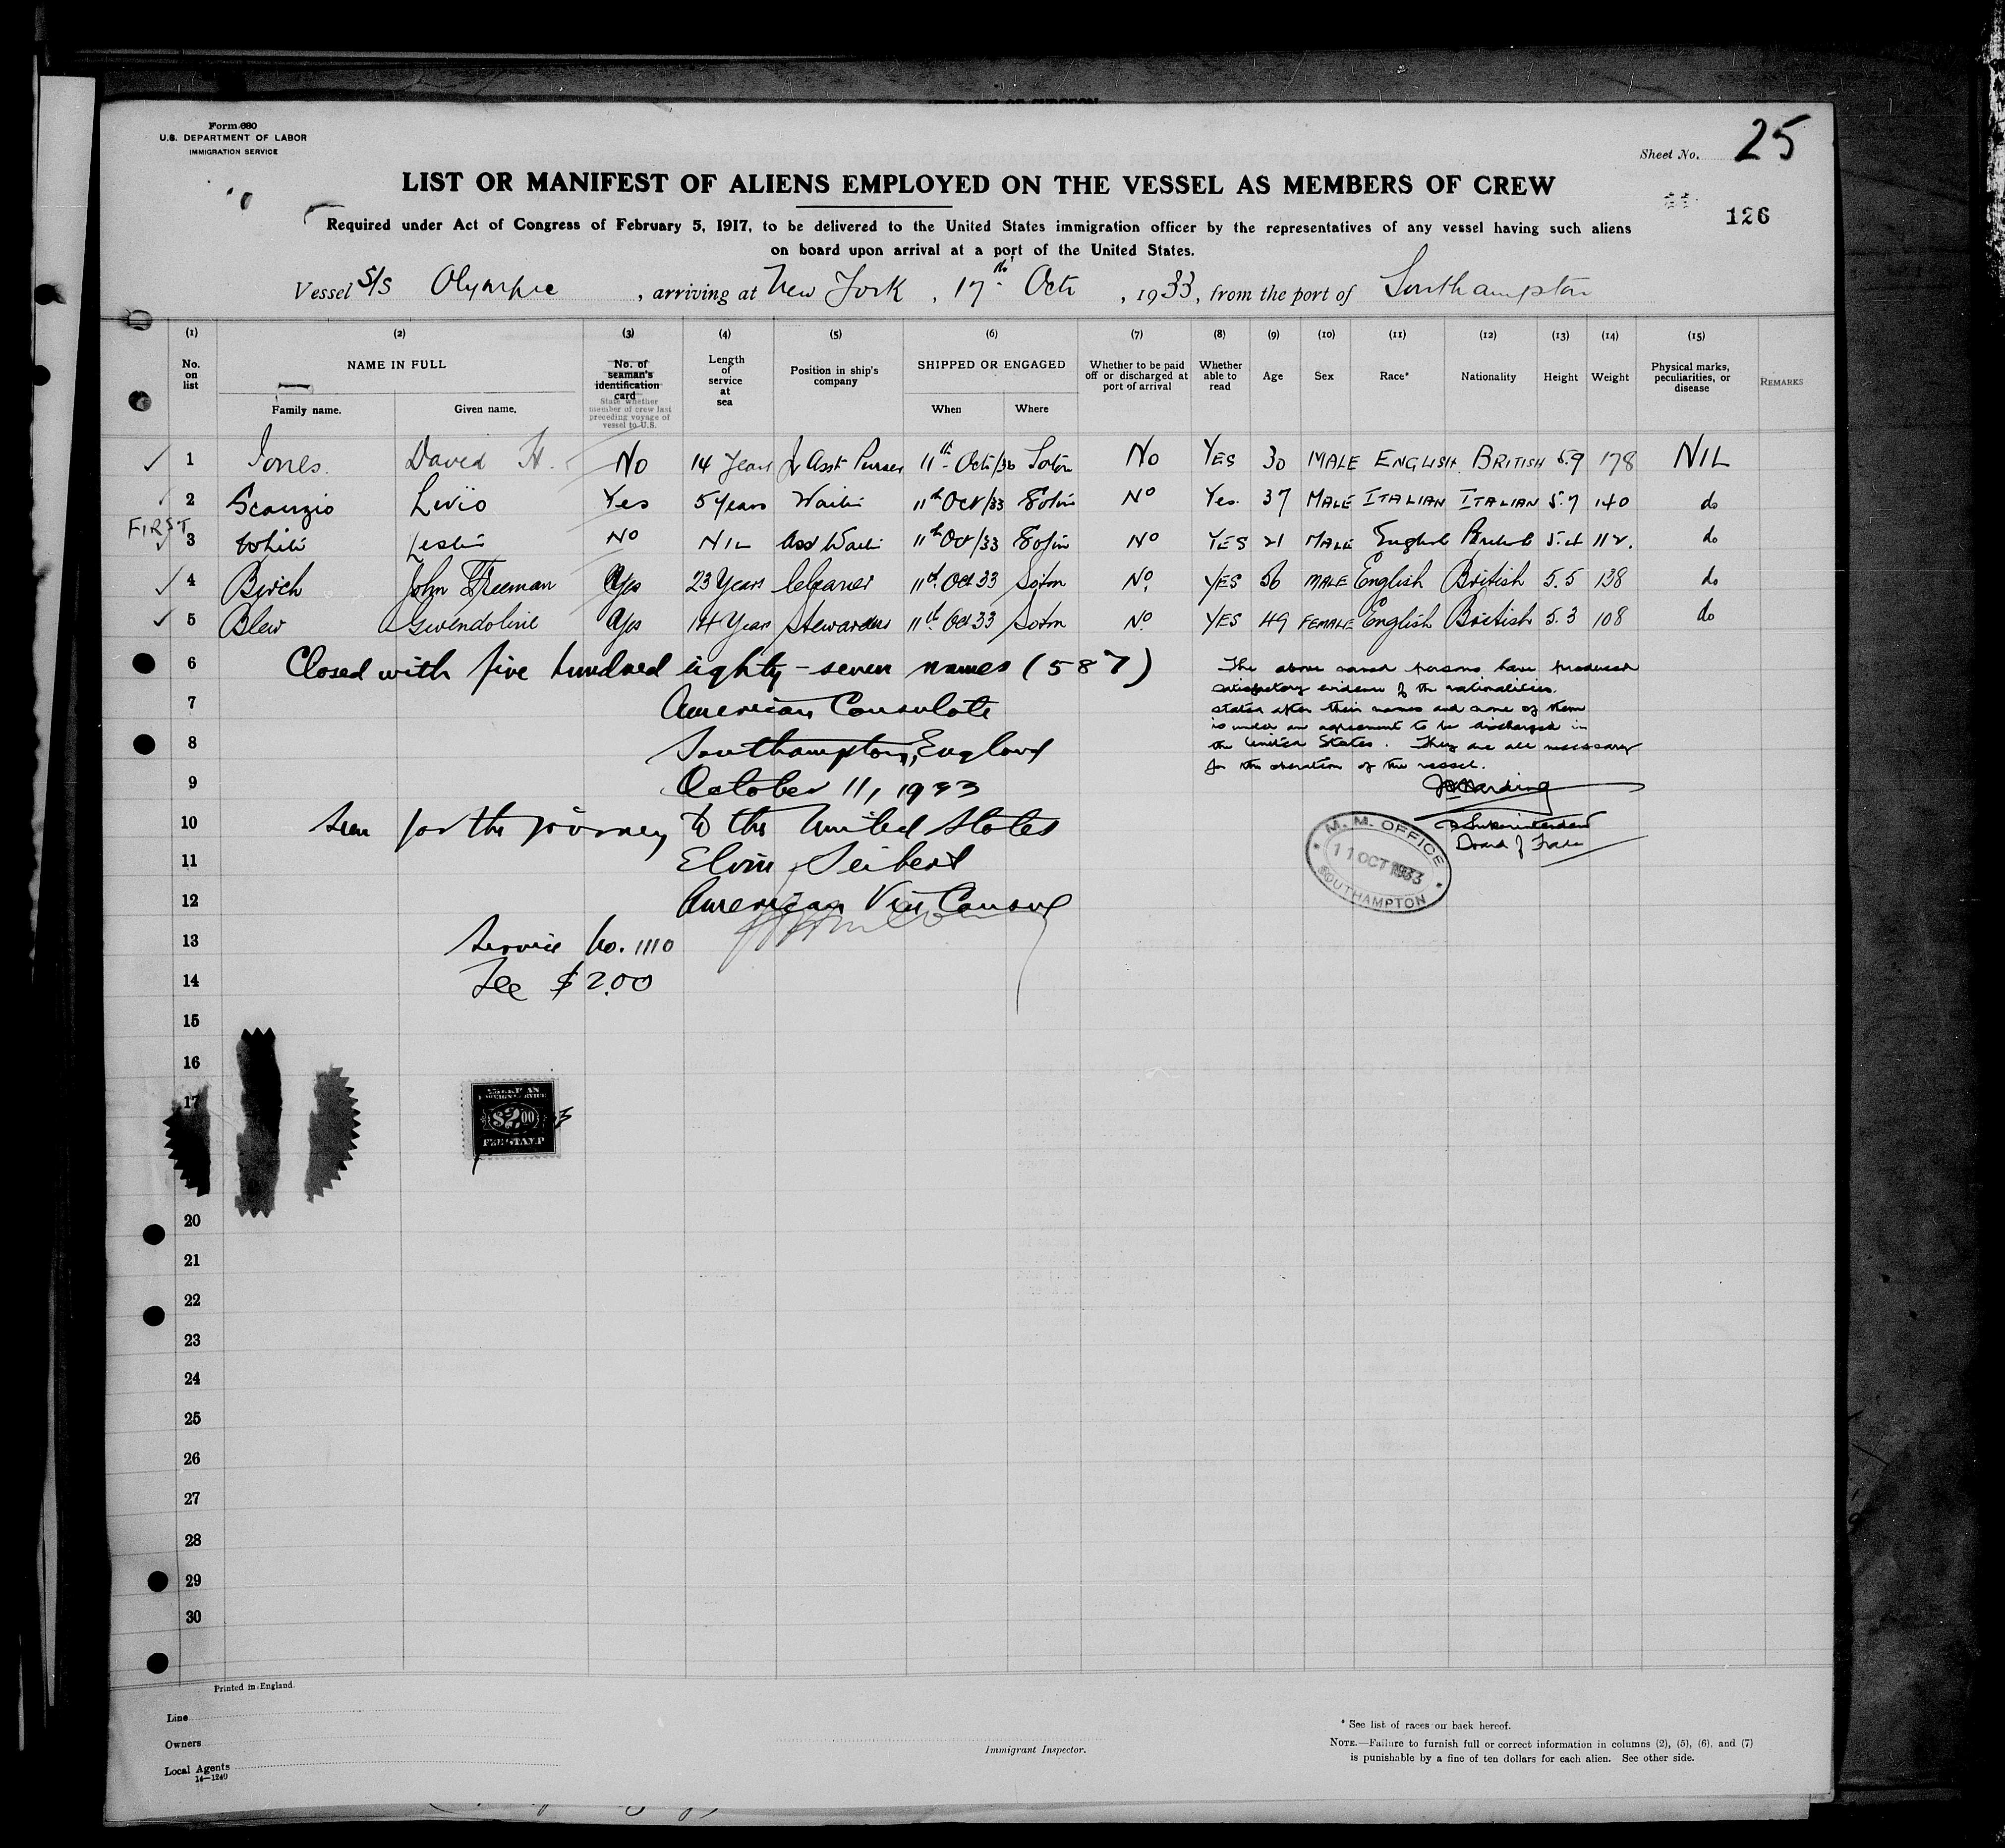 Form 680
U.S. DEPARTMENT OF LABOR
IMMIGRATION SERVICE
Sheet No. 25
LIST OR MANIFEST OF ALIENS EMPLOYED ON THE VESSEL AS MEMBERS OF CREW
126
Required under Act of Congress of February 5, 1917, to be delivered to the United States immigration officer by the representatives of any vessel having such aliens
on board upon arrival at a port of the United States.
Vessel S/S Olympic, arriving at New York, 17th Oct, 1933, from the port of Southampton
(1) (2) (3) (4) (5) (6) (7) (8) (9) (10) (11) (12) (13) (14) (15)
No. on list NAME IN FULL Family name. Given name. No. of seaman's identification card State whether member of crew last preceding voyage of vessel to U.S. Length of service at sea Position in ship's company SHIPPED OR ENGAGED When Where Whether to be paid off or discharged at port of arrival Whether able to read Age Sex Race* Nationality Height Weight Physical marks, peculiarities, or disease REMARKS
1 Jones David H. No 14 Years Jr Asst Purser 11th Oct/33 Soton No YES 30 MALE ENGLISH BRITISH 5.9 178 NIL
2 Scanzio Livio Yes 5 Years Waiter 11th Oct/33 Soton No Yes. 37 MALE ITALIAN ITALIAN 5.7 140 do
FIRST
3 White Leslie No NIL Asst Waiter 11th Oct/33 Soton No YES 21 MALE English British 5.4 112. do
4 Birch John Freeman Yes 23 Years Cleaner 11th Oct 33 Soton No. YES 56 MALE English British 5.5 138 do
5 Blew Gwendoline Yes 14 Years Stewardess 11th Oct 33 Soton No. YES 49 FEMALE English British 5.3 108 do
6 Closed with five hundred eighty-seven names (587)
7 American Consulate
8 Southampton, England
9 October 11, 1933
10 Seen for the journey to the United States
11 Elvin Seibert
12 American Vice Consul
13 Service No. 1110
14 Fee $2.00
The above named persons have produced
satisfactory evidence of the nationalities
stated after their names and none of them
is under an agreement to be discharged in
the United States. They are all necessary
for the operation of the vessel.
Harding
Superintendent
Board of Trade
M. M. OFFICE
11 OCT 1933
SOUTHAMPTON
15
16
17
AMERICAN
FOREIGN SERVICE
$2.00
FEE STAMP
20
21
22
23
24
25
26
27
28
29
30
Printed in England.
Line
Owners
Local Agents
14—1240
Immigrant Inspector.
* See list of races on back hereof.
NOTE.—Failure to furnish full or correct information in columns (2), (5), (6), and (7)
is punishable by a fine of ten dollars for each alien. See other side.